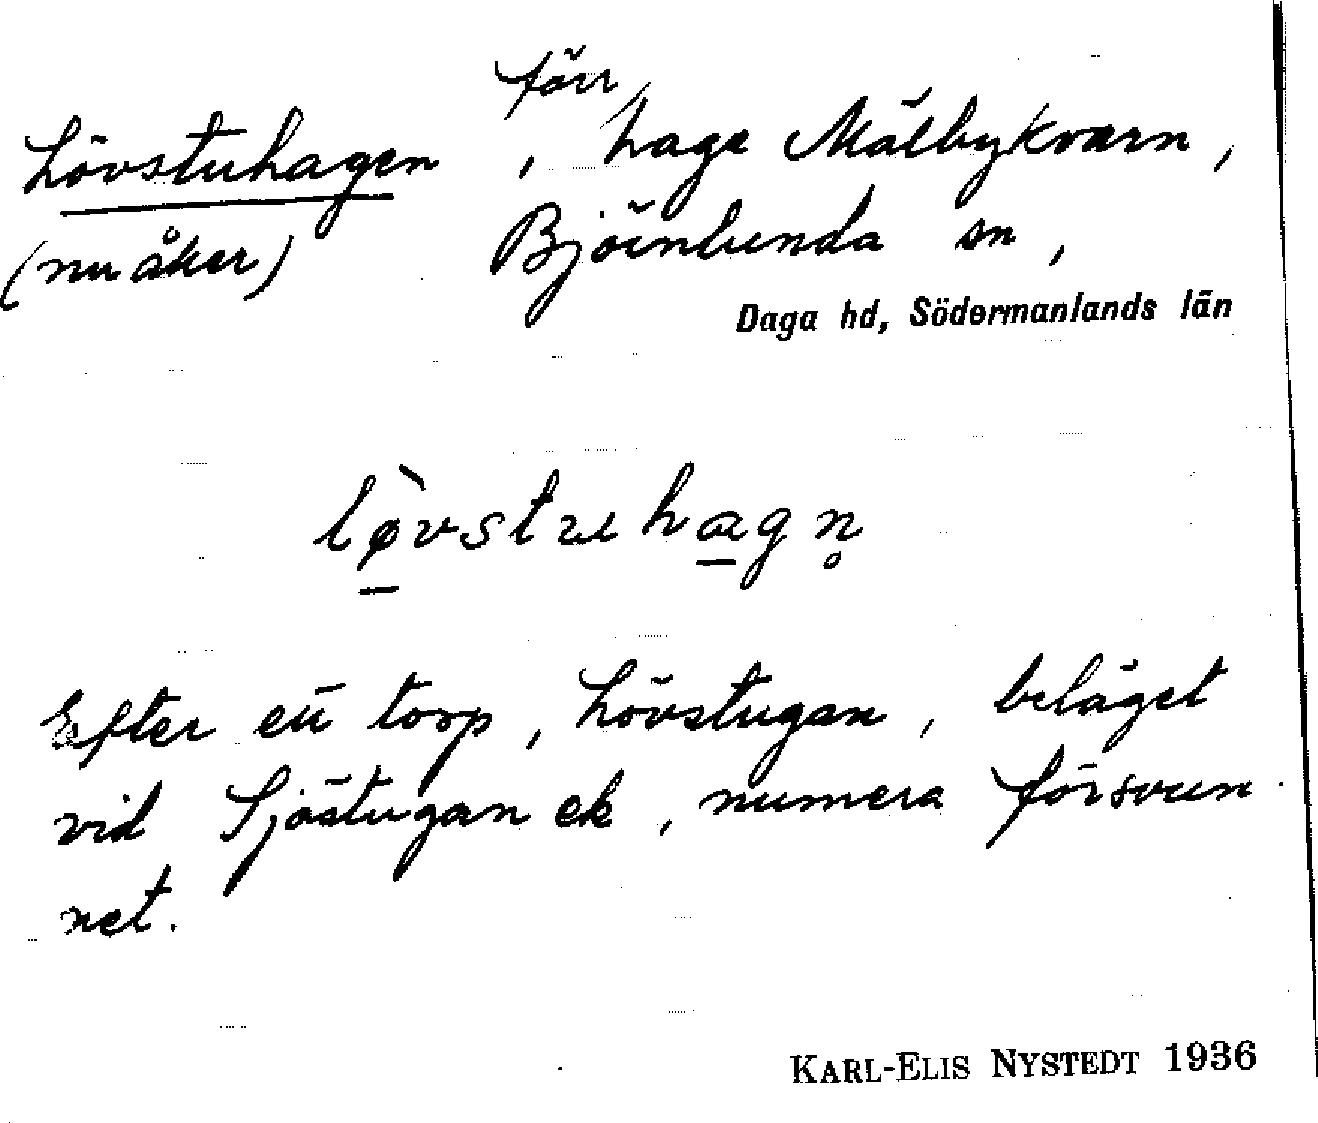 förr
Lövstuhagen, hage Mälbykvarn,
(nu åker) Björnlunda sn,
Daga hd, Södermanlands län
lø̀vstuhagn̥
Efter ett torp, Lövstugan, beläget
vid Sjöstugan ek, numera försvun
net.
KARL-ELIS NYSTEDT 1936